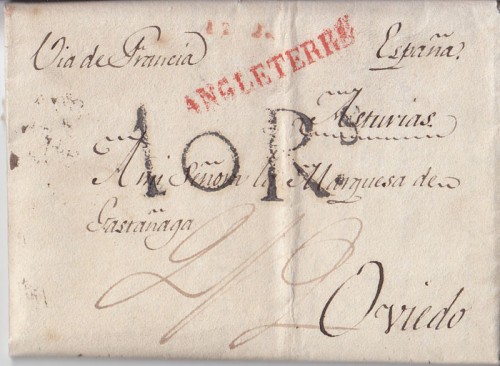 Via de Francia
España.
ANGLETERRE
Asturias.
10 Rs
A mi Señora la Marquesa de
Gastañaga
Oviedo